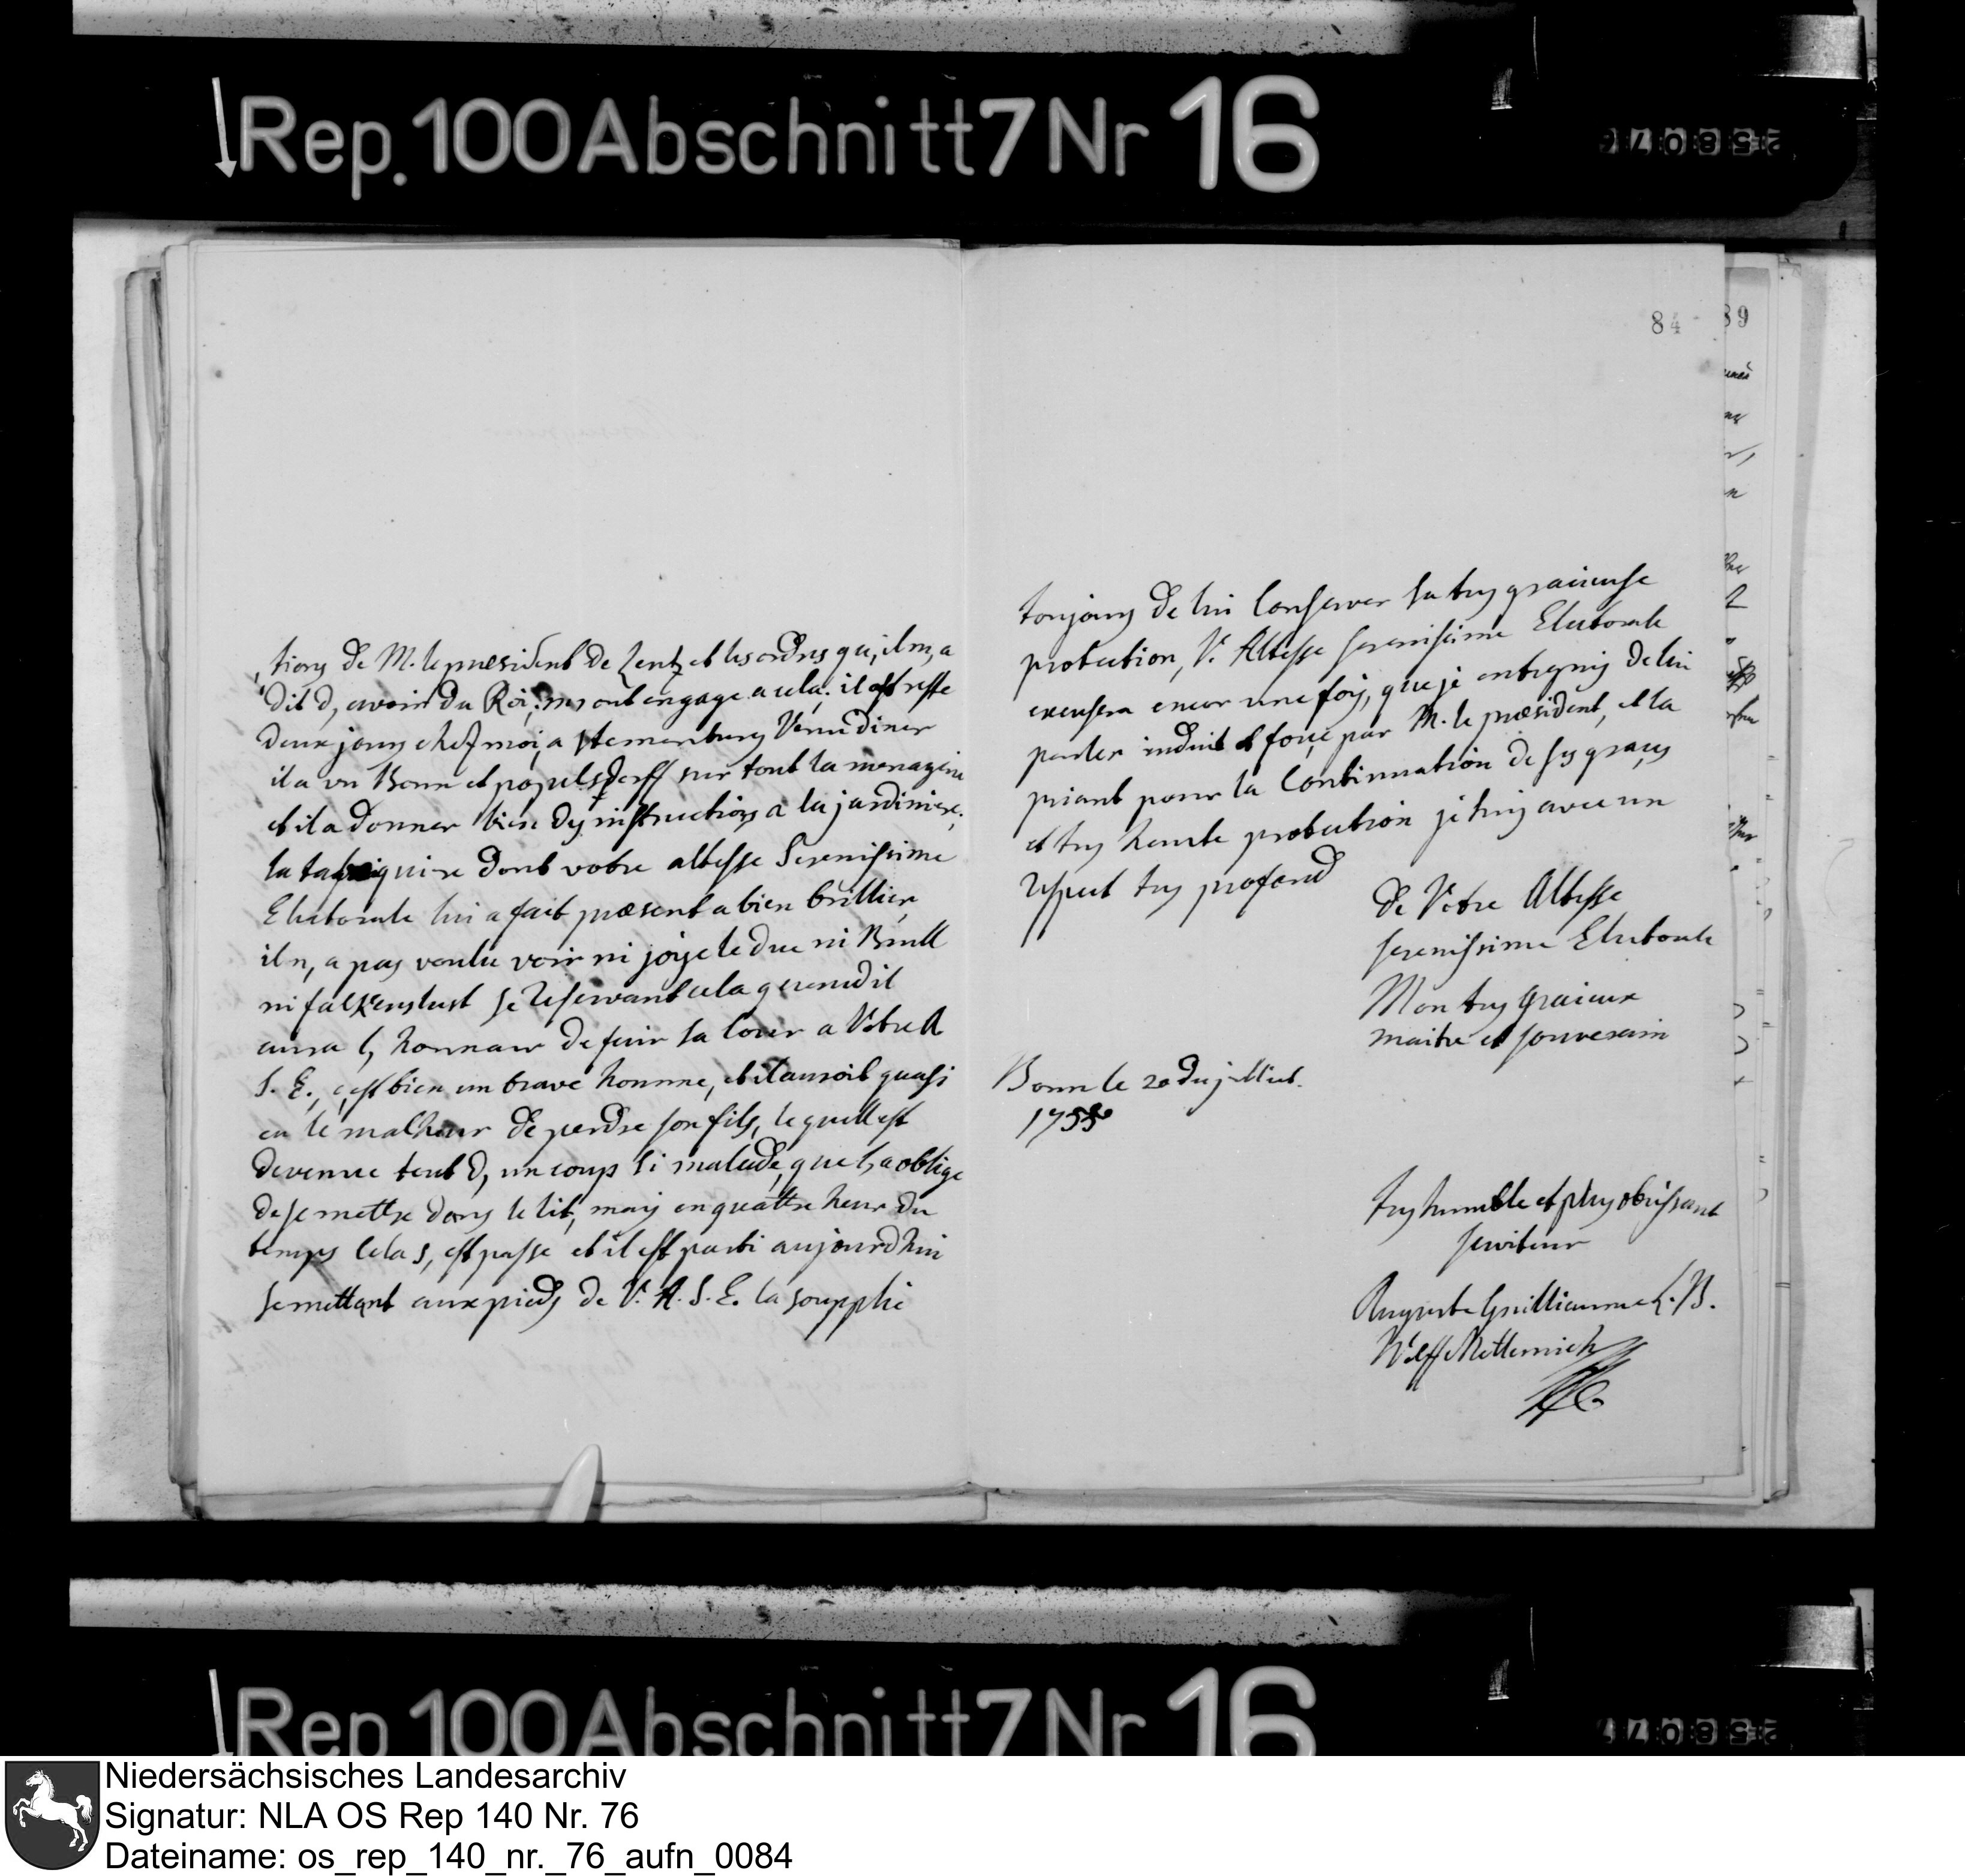 Rep. 100 Abschnitt 7 Nr 16
84
89
tions de M. le præsident de Lentz et les ordres qu, il m, a
dit d, avoir du Roi, m, ont engage a cela; il est reste
deux jours chez moi, a
il a vu Bonn et popelsdorff sur tout la menagerie
et il a donner bien des instructions a la jardiniere,
la dont votre altesse Serenissime
Electorale lui a fait præsent a bien brillier,
il n, a pas voulu voir ni joye le duc ni Brull
ni falkenslust se reservant cela quand il
aura l, honnaur de fair sa cour a Votre A
S. E., c, est bien un brave homme, et il auroit quasi
eu le malheur de perdre son fils, le quell est
devenue tout d, un coup si malade, que l, a oblige
de se mettre dans le lit, mais en quattre heur du
temps cela s, est passe et il est parti aujourdhui
se mettant aux pieds de V. A. S. E. la soupplie
toujours de lui Conserver sa tres graciuese
protection, V. Altesse serenissime Electorale
excusera encor une fois, que je entrepris de lui
parler induit et forçé par M. le præsident, et la
priant pour la Continuation de ses graçes
et tres haute protection je suis avec un
respect tres profond
de Votre Altesse
serenissime Electorale
Mon tres gracieux
maitre et souverain
Bonn le 20 du juilliet.
1755
tres humble et plus obeissant
serviteur
Auguste Guilliaume L. B.
Wolff Metternich
Rep 100 Abschnitt 7 Nr 16
Niedersächsisches Landesarchiv
Signatur: NLA OS Rep 140 Nr. 76
Dateiname: os_rep_140_nr._76_aufn_0084